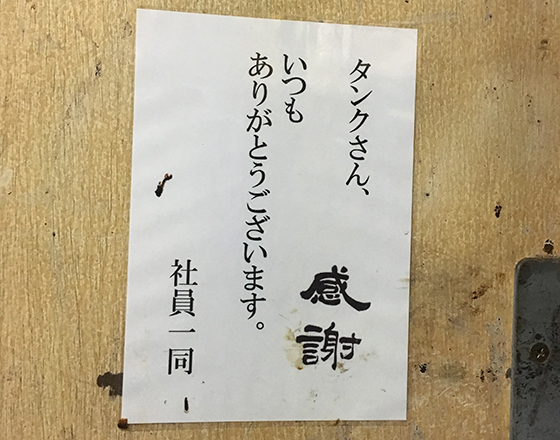 タンクさん、
いつも
ありがとうございます。
感謝
社員一同